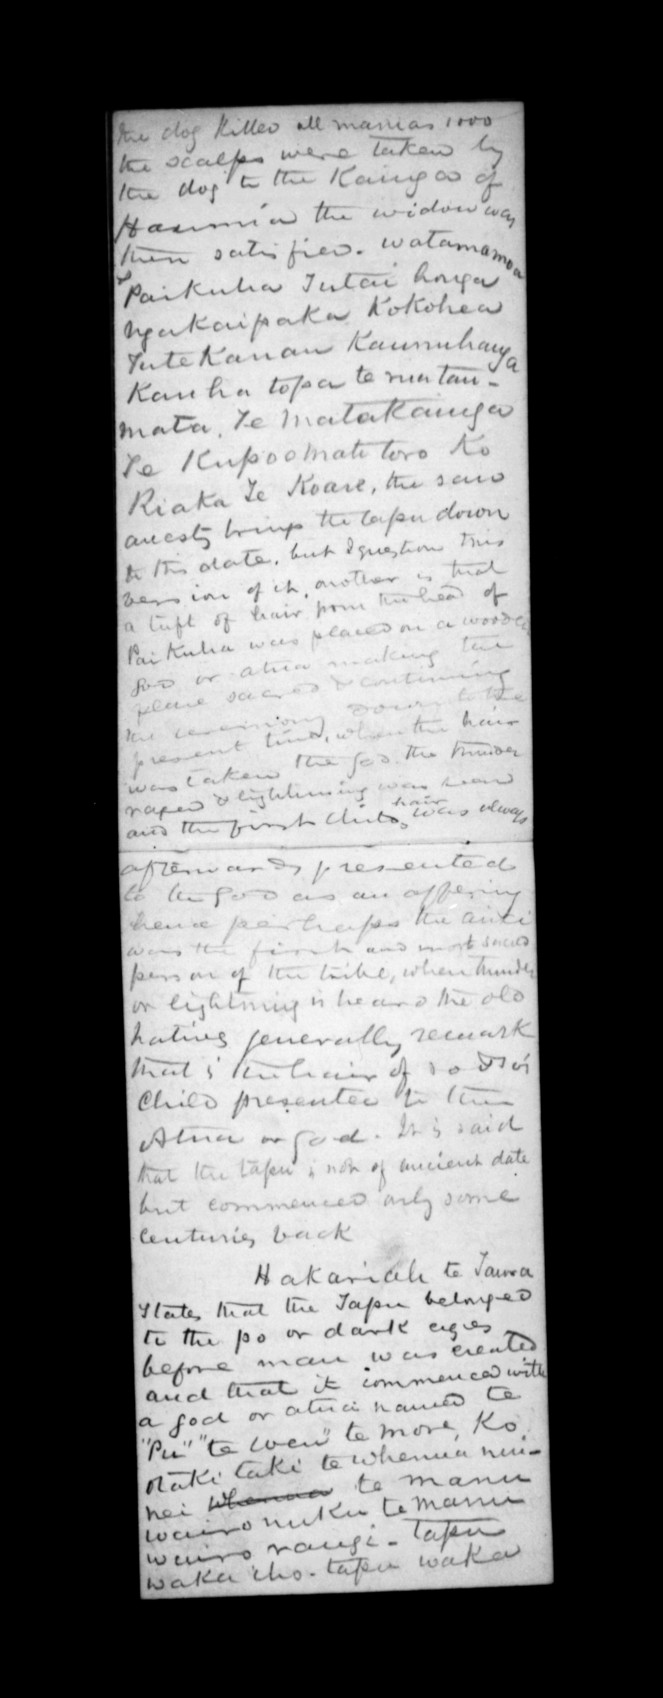 the dog killed all manias 1000
the scalps were taken by
the dog to the Kainga of
Haumia the widow was
then satisfied. watamamoa
Paikuha Tutai honga
ngakaipaka Kokohea
Tutekanau Kaumuhanga
Kauha topa te ruatau-
mata. Te Matakainga
Te Kupoomatotoro Ko
Riaka Te Koare, the said
ancests brings the tapu down
to this date, but I question this
version of it, another is that
a tuft of hair from the head of
Paikuha was placed on a wooden
god or atua making the
place sacred & continuing
the ceremony down to the
present time, when the hair
was taken the god. the thunder
raged & lightning was seen
and the first childs hair was always
afterwards presented
to the god as an offering
hence perhaps the ariki
was the first and most sacred
person of the tribe, when thunder
or lightning is heard the old
natives generally remark
that is the hair of so & so's
Child presented to the
Atua or god. It is said
that the tapu is not of ancient date
but commenced only some
centuries back
Hakariah te Tawra
States that the Tapu belonged
to the po or dark ages
before man was created
and that it commenced with
a god or atua named te
"Pu" "te weu" te more, Ko
otaki taki te whenua nui-
nei whenua te manu
wairo nuku te manu
wairo rangi - tapu
waka iho - tapu waka